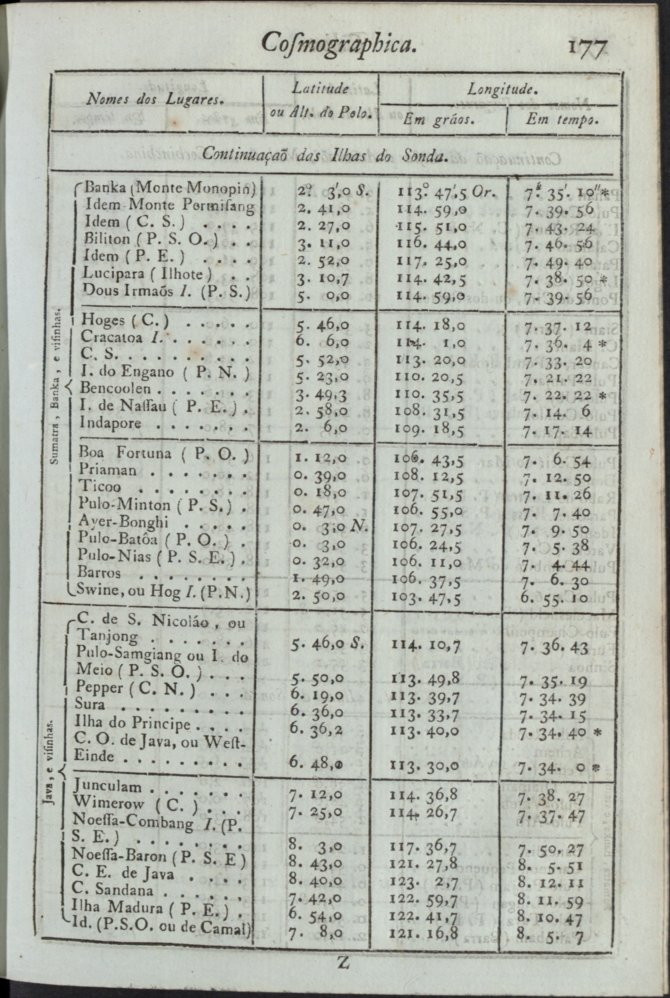 Cosmographica. 177
Nomes dos Lugares. Latitude ou Alt. do Polo. Longitude.
Em gráos. Em tempo.
Continuaçaõ das Ilhas do Sonda.
Sumatra, Banka, e visinhas.
Banka (Monte Monopin) 2.° 3,′0 S. 113.° 47,′5 Or. 7.ʰ 35.′ 10″*
Idem Monte Permisang 2. 41,0 114. 59,0 7. 39. 56
Idem ( C. S. ) . . . . 2. 27,0 115. 51,0 7. 43. 24
Biliton ( P. S. O. ) . . 3. 11,0 116. 44,0 7. 46. 56
Idem ( P. E. ) . . . . 2. 52,0 117. 25,0 7. 49. 40
Lucipara ( Ilhote ) . . 3. 10,7 114. 42,5 7. 38. 50 *
Dous Irmaõs I. (P. S.) 5. 0,0 114. 59,0 7. 39. 56
Hoges ( C. ) . . . . . 5. 46,0 114. 18,0 7. 37. 12
Cracatoa I. . . . . . . 6. 6,0 114. 1,0 7. 36. 4 *
C. S. . . . . . . . . . 5. 52,0 113. 20,0 7. 33. 20
I. do Engano ( P. N. ) 5. 23,0 110. 20,5 7. 21. 22
Bencoolen . . . . . . . 3. 49,3 110. 35,5 7. 22. 22 *
I. de Nassau ( P. E. ) . 2. 58,0 108. 31,5 7. 14. 6
Indapore . . . . . . . 2. 6,0 109. 18,5 7. 17. 14
Boa Fortuna ( P. O. ) 1. 12,0 106. 43,5 7. 6. 54
Priaman . . . . . . . 0. 39,0 108. 12,5 7. 12. 50
Ticoo . . . . . . . . 0. 18,0 107. 51,5 7. 11. 26
Pulo-Minton ( P. S. ) . 0. 47,0 106. 55,0 7. 7. 40
Ayer-Bonghi . . . . . 0. 3,0 N. 107. 27,5 7. 9. 50
Pulo-Batôa ( P. O. ) . 0. 3,0 106. 24,5 7. 5. 38
Pulo-Nias ( P. S. E. ) . 0. 32,0 106. 11,0 7. 4. 44
Barros . . . . . . . . 1. 49,0 106. 37,5 7. 6. 30
Swine, ou Hog I. (P.N.) 2. 50,0 103. 47,5 6. 55. 10
Java, e visinhas.
C. de S. Nicoláo, ou
Tanjong . . . . . . . 5. 46,0 S. 114. 10,7 7. 36. 43
Pulo-Samgiang ou I. do
Meio ( P. S. O. ) . . . 5. 50,0 113. 49,8 7. 35. 19
Pepper ( C. N. ) . . . 6. 19,0 113. 39,7 7. 34. 39
Sura . . . . . . . . . 6. 36,0 113. 33,7 7. 34. 15
Ilha do Principe . . . . 6. 36,2 113. 40,0 7. 34. 40 *
C. O. de Java, ou West-
Einde . . . . . . . . . 6. 48,0 113. 30,0 7. 34. 0 *
Junculam . . . . . . . 7. 12,0 114. 36,8 7. 38. 27
Wimerow ( C. ) . . . 7. 25,0 114. 26,7 7. 37. 47
Noessa-Combang I. (P.
S. E. ) . . . . . . . . 8. 3,0 117. 36,7 7. 50. 27
Noessa-Baron ( P. S. E ) 8. 43,0 121. 27,8 8. 5. 51
C. E. de Java . . . . 8. 40,0 123. 2,7 8. 12. 11
C. Sandana . . . . . . 7. 42,0 122. 59,7 8. 11. 59
Ilha Madura ( P. E. ) . 6. 54,0 122. 41,7 8. 10. 47
Id. (P.S.O. ou de Camal) 7. 8,0 121. 16,8 8. 5. 7
Z